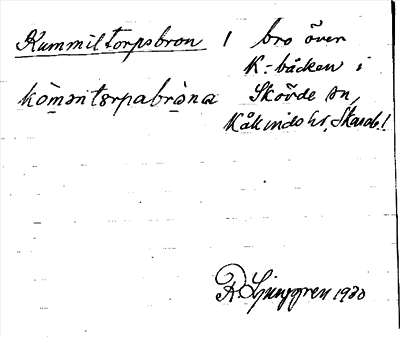 Kummiltorpsbron 1 bro över
K:bäcken i
Skövde sn,
Kåkinds hd, Skarab.!
kòmənterpabròna
R Ljunggren 1930